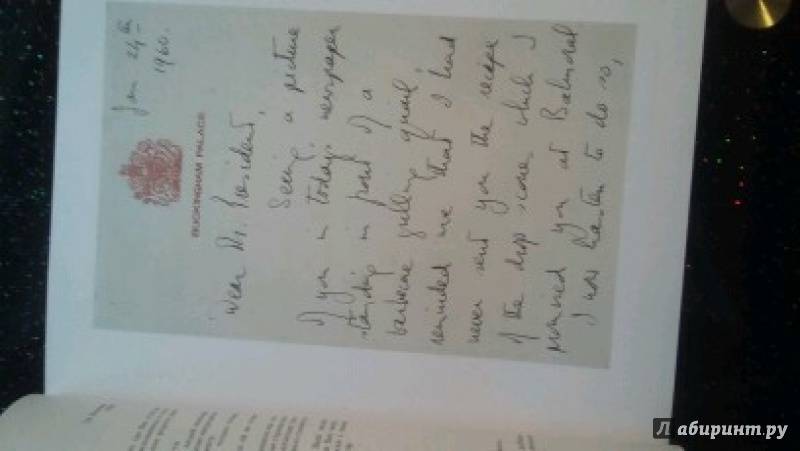 Jan 24th
1960.
BUCKINGHAM PALACE
Dear Mr. President,
Seeing a picture
of you in today's newspaper
standing in front of a
barbecue grilling quail,
reminded me that I had
never sent you the recipe
of the drop scones which I
promised you at Balmoral
I now hasten to do so,
Лабиринт.ру